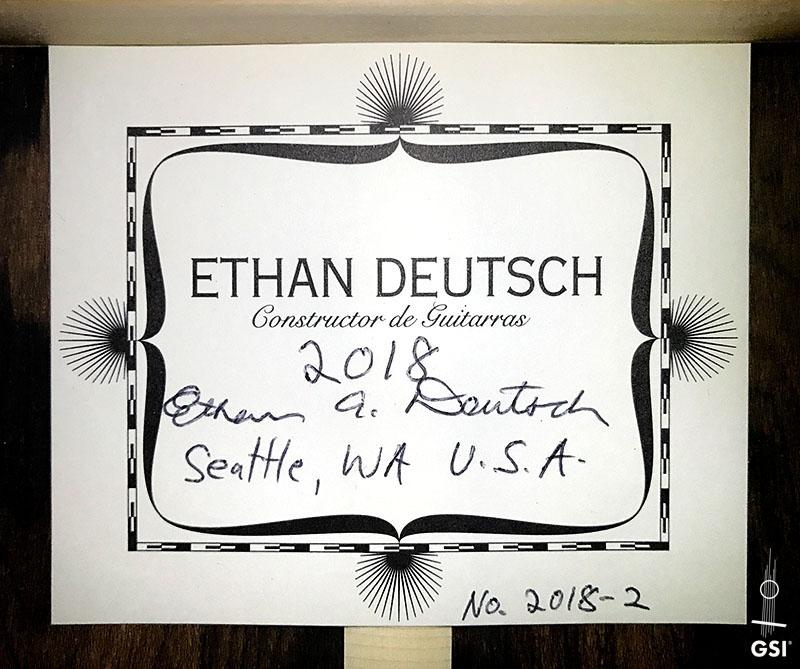 ETHAN DEUTSCH
Constructor de Guitarras
2018
Ethan A. Deutsch
Seattle, WA U.S.A.
No. 2018-2
GSI